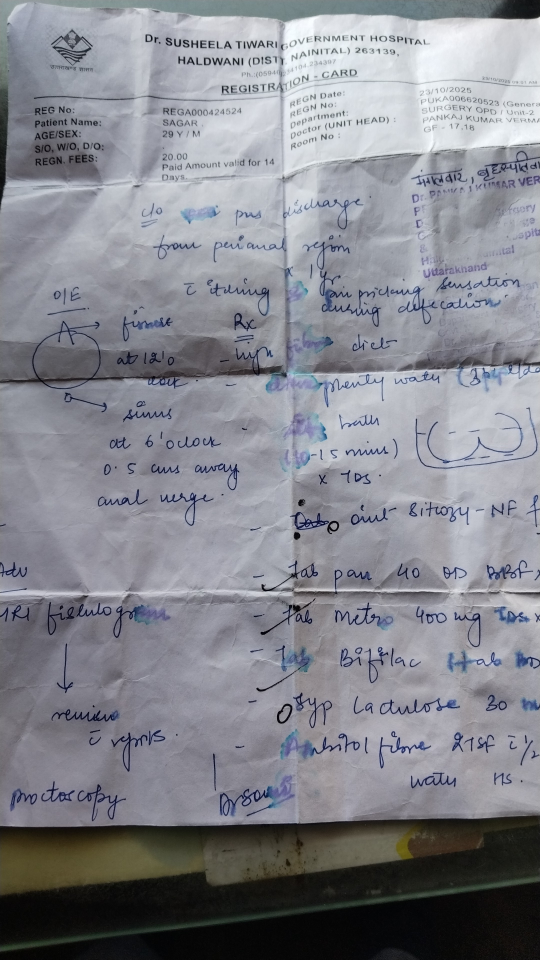 Dr. SUSHEELA TIWARI GOVERNMENT HOSPITAL
HALDWANI (DISTT. NAINITAL) 263139,
REGISTRATION - CARD
REG No: REGA000424524
Patient Name: SAGAR
AGE/SEX: 29 Y / M
S/O, W/O, D/O:
REGN. FEES: 20.00
Paid Amount valid for 14
Days.
REGN Date: 23/10/2025
REGN No: PUKA006620523 (General
Department: SURGERY OPD / Unit-2
Doctor (UNIT HEAD) : PANKAJ KUMAR VERMA
Room No : GF - 17,18
मंगलवार, बृहस्पतिवा
Dr. PANKAJ KUMAR VER
Uttarakhand
c/o pus discharge
from perianal region
x 1 yr.
c̄ itching pricking sensation
during defecation
O/E
at 12 o
clock.
sinus
at 6 o'clock
0.5 cms away
anal verge.
Rx
- high fibre diet
- plenty water
bath
(10-15 mins)
x TDS.
- oint Sitcozy-NF
- Tab pan 40 OD BBF
- Tab Metro 400 mg TDS x
- Tab Bifilac 1 tab BD
- Syp Lactulose 30
- fibre 2 TSF c̄ 1/2
water HS.
Adv
MRI fistulogram
review
c̄ reports.
proctoscopy